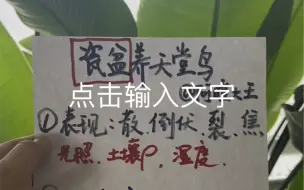 瓷盆养天堂鸟
点击输入文字
王
①表现：散、倒伏、裂、焦
光照、土壤、湿度、